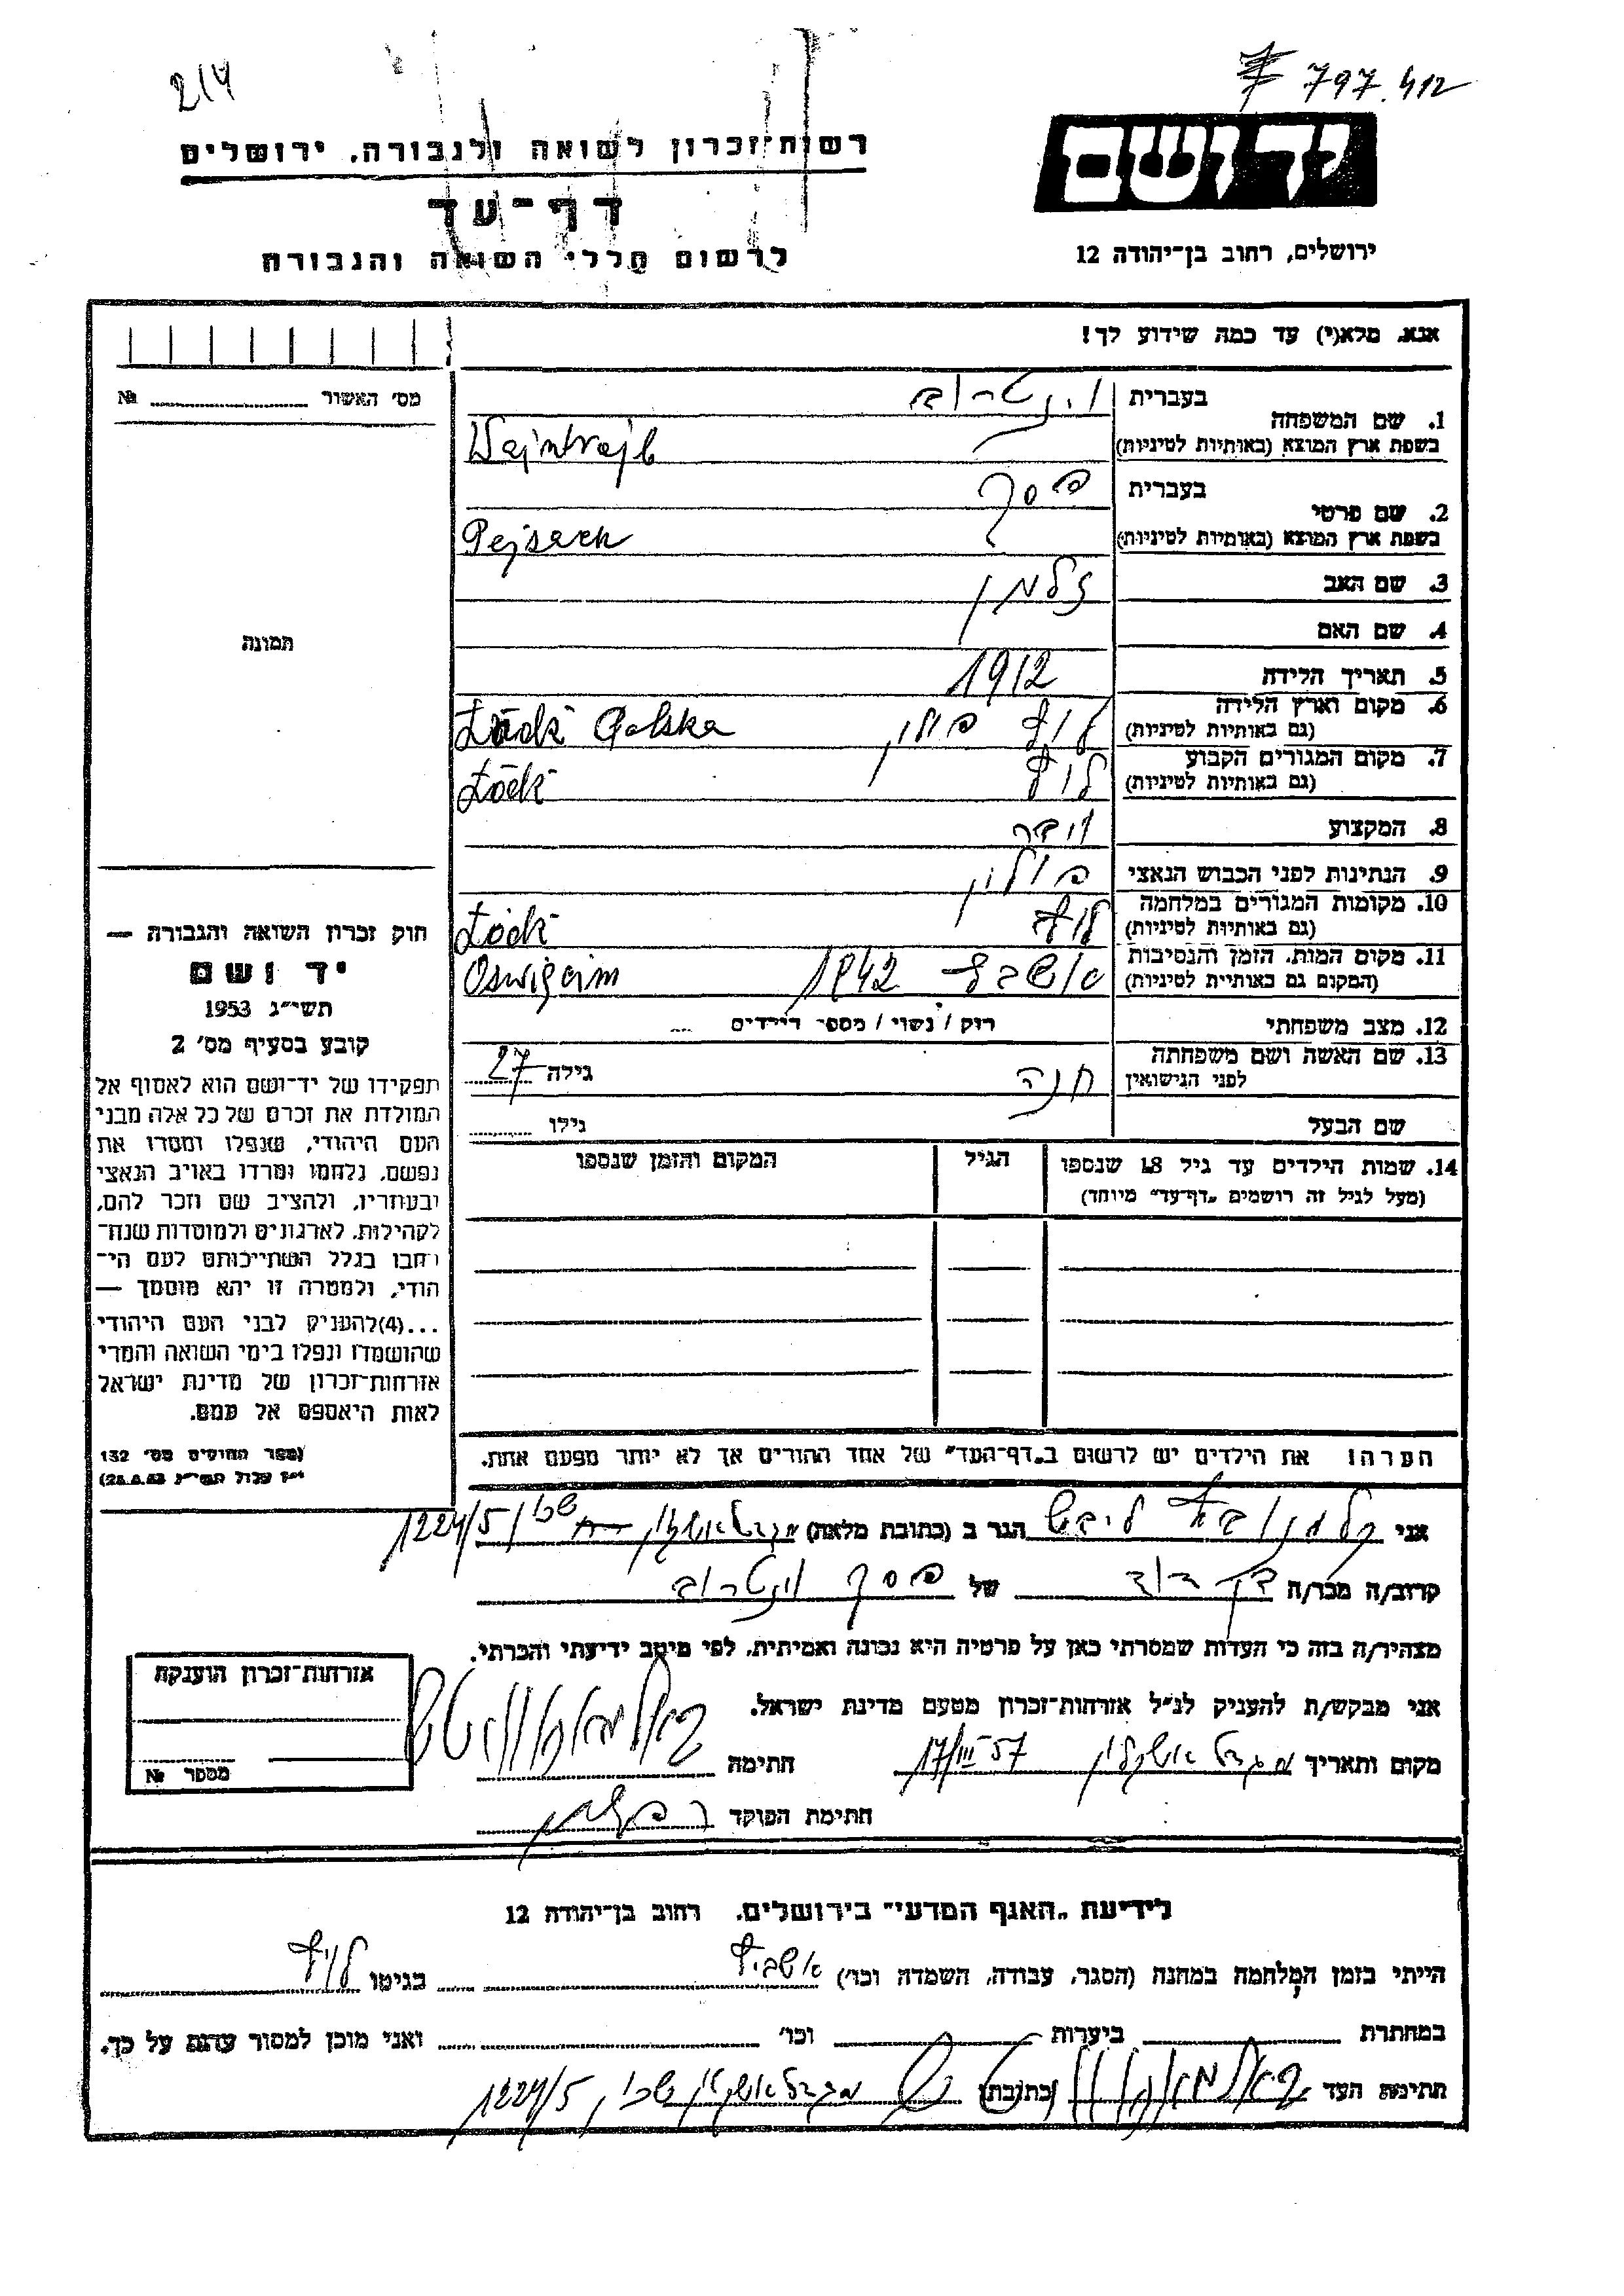 214
797.412
יד ושם
רשות־זכרון לשואה ולגבורה, ירושלים
דף־עד
לרשום חללי השואה והגבורה
ירושלים, רחוב בן־יהודה 12
אנא, מלא(י) עד כמה שידוע לך!
מס׳ האשור № 
1. שם המשפחה
בעברית וינטרוב
בשפת ארץ המוצא (באותיות לטיניות) Wajntrajb
2. שם פרטי
בעברית פסח
בשפת ארץ המוצא (באותיות לטיניות) Pejsach
3. שם האב זלמן
4. שם האם
5. תאריך הלידה 1912
6. מקום וארץ הלידה לודז פולין Łódź Polska
(גם באותיות לטיניות)
7. מקום המגורים הקבוע לודז Łódź
(גם באותיות לטיניות)
8. המקצוע
9. הנתינות לפני הכבוש הנאצי פולין
10. מקומות המגורים במלחמה לודז Łódź
(גם באותיות לטיניות)
11. מקום המות, הזמן והנסיבות 1942 Oswięcim
(המקום גם באותיות לטיניות)
12. מצב משפחתי רוק / נשוי / מספר הילדים
13. שם האשה ושם משפחתה חנה גילה 27
לפני הנישואין
שם הבעל גילו
14. שמות הילדים עד גיל 18 שנספו הגיל המקום והזמן שנספו
(מעל לגיל זה רושמים „דף־עד״ מיוחד)
הערה: את הילדים יש לרשום ב„דף־העד״ של אחד ההורים אך לא יותר מפעם אחת.
תמונה
חוק זכרון השואה והגבורה —
יד ושם
תשי״ג 1953
קובע בסעיף מס׳ 2
תפקידו של יד־ושם הוא לאסוף אל
המולדת את זכרם של כל אלה מבני
העם היהודי, שנפלו ומסרו את
נפשם, נלחמו ומרדו באויב הנאצי
ובעוזריו, ולהציב שם וזכר להם,
לקהילות, לארגונים ולמוסדות שנח־
רבו בגלל השתייכותם לעם הי־
הודי, ולמטרה זו יהא מוסמך —
...(4)להעניק לבני העם היהודי
שהושמדו ונפלו בימי השואה והמרי
אזרחות־זכרון של מדינת ישראל
לאות היאספם אל עמם.
(ספר החוקים מס׳ 132
י״ז אלול תשי״ג 28.8.53)
אני ליבש הגר ב (כתובת מלאה) מגדל אשקלון 1224/5
קרוב/ה מכר/ה בן דוד של פסח וינטרוב
מצהיר/ה בזה כי העדות שמסרתי כאן על פרטיה היא נכונה ואמיתית, לפי מיטב ידיעתי והכרתי.
אני מבקש/ת להעניק לנ״ל אזרחות־זכרון מטעם מדינת ישראל.
מקום ותאריך מגדל אשקלון 17/III 57 חתימה
חתימת הפוקד
אזרחות־זכרון הוענקה
מספר №
לידיעת „האגף המדעי״ בירושלים, רחוב בן־יהודה 12
הייתי בזמן המלחמה במחנה (הסגר, עבודה, השמדה וכו׳) אשביץ בגיטו לודז
במחתרת ביערות וכו׳ ואני מוכן למסור עדות על כך.
חתימת העד (כתובת) מגדל אשקלון 1224/5